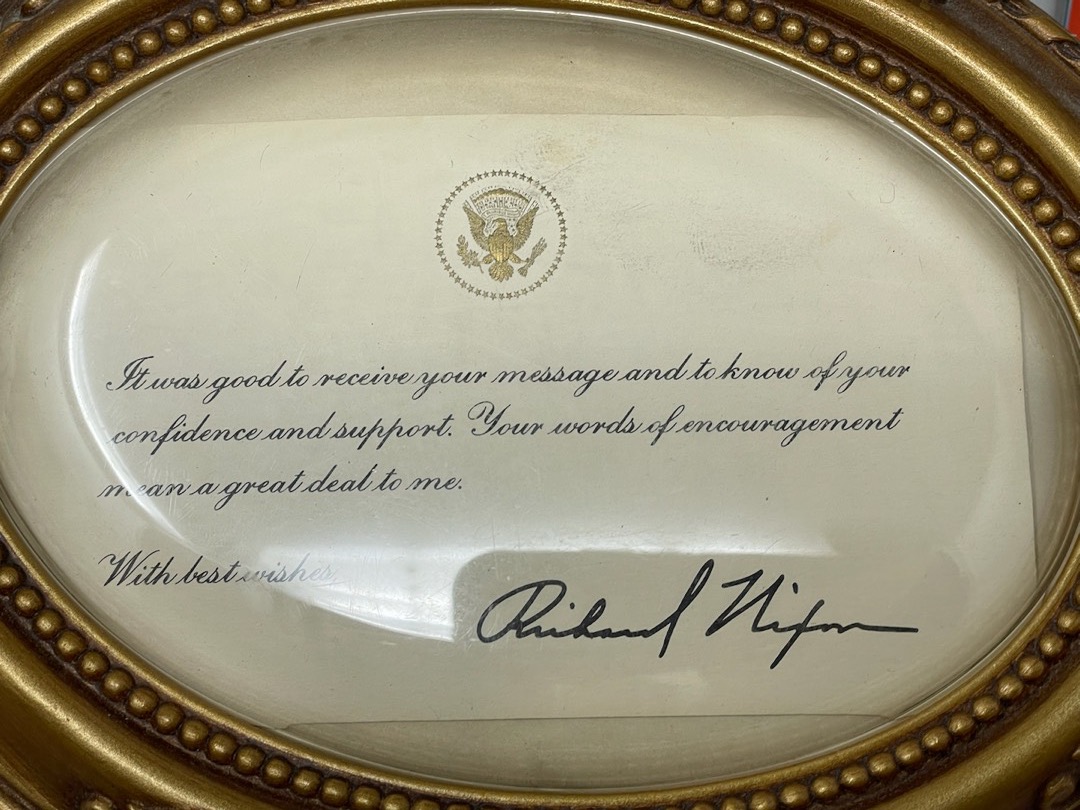 It was good to receive your message and to know of your
confidence and support. Your words of encouragement
mean a great deal to me.
With best wishes,
Richard Nixon